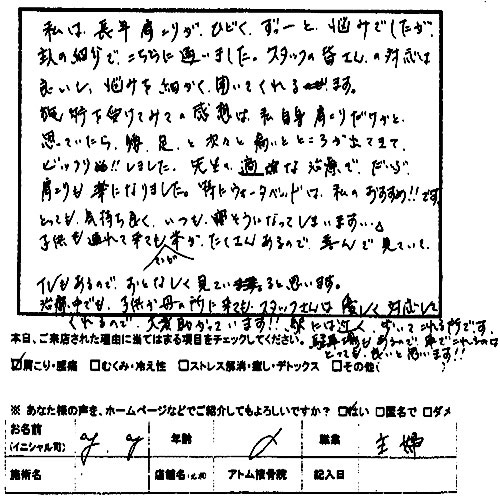 私は、長年肩こりが、ひどく、ずーっと、悩みでしたが、
友人の紹介で、こちらに通いました。スタッフの皆さんの対応は
良いし、悩みを細かく、聞いてくれます。
施術を受けてみての感想は、私自身肩こりだけかと、
思っていたら、腰、足、と次々と痛いところが出てきて、
ビックリ!!しました。先生の適確な治療で、だいぶ、
肩こりも楽になりました。特にウォーターベッドは、私のおすすめ!!です。
とっても、気持ち良く、いつも、眠そうになってしまいます…。
子供も連れて来ても本が、たくさんあるので、喜んで見ていて、
TVもあるので、おとなしく見ていると思います。
治療中でも、子供が母の所に来ても、スタッフさんは優しく対応して
くれるので、大変助かっています!!駅には近く、歩いてこれる所です。
駐車場もあるので、車でこれるのは
とっても、良いと思います!!
本日、ご来店された理由に当てはまる項目をチェックしてください。
☑肩こり・腰痛 □むくみ・冷え性 □ストレス解消・癒し・デトックス □その他( )
※ あなた様の声を、ホームページなどでご紹介してもよろしいですか? ☑はい □匿名で □ダメ
お名前 (イニシャル可) y.y 年齢 職業 主婦
施術名 店舗名 アトム接骨院 記入日